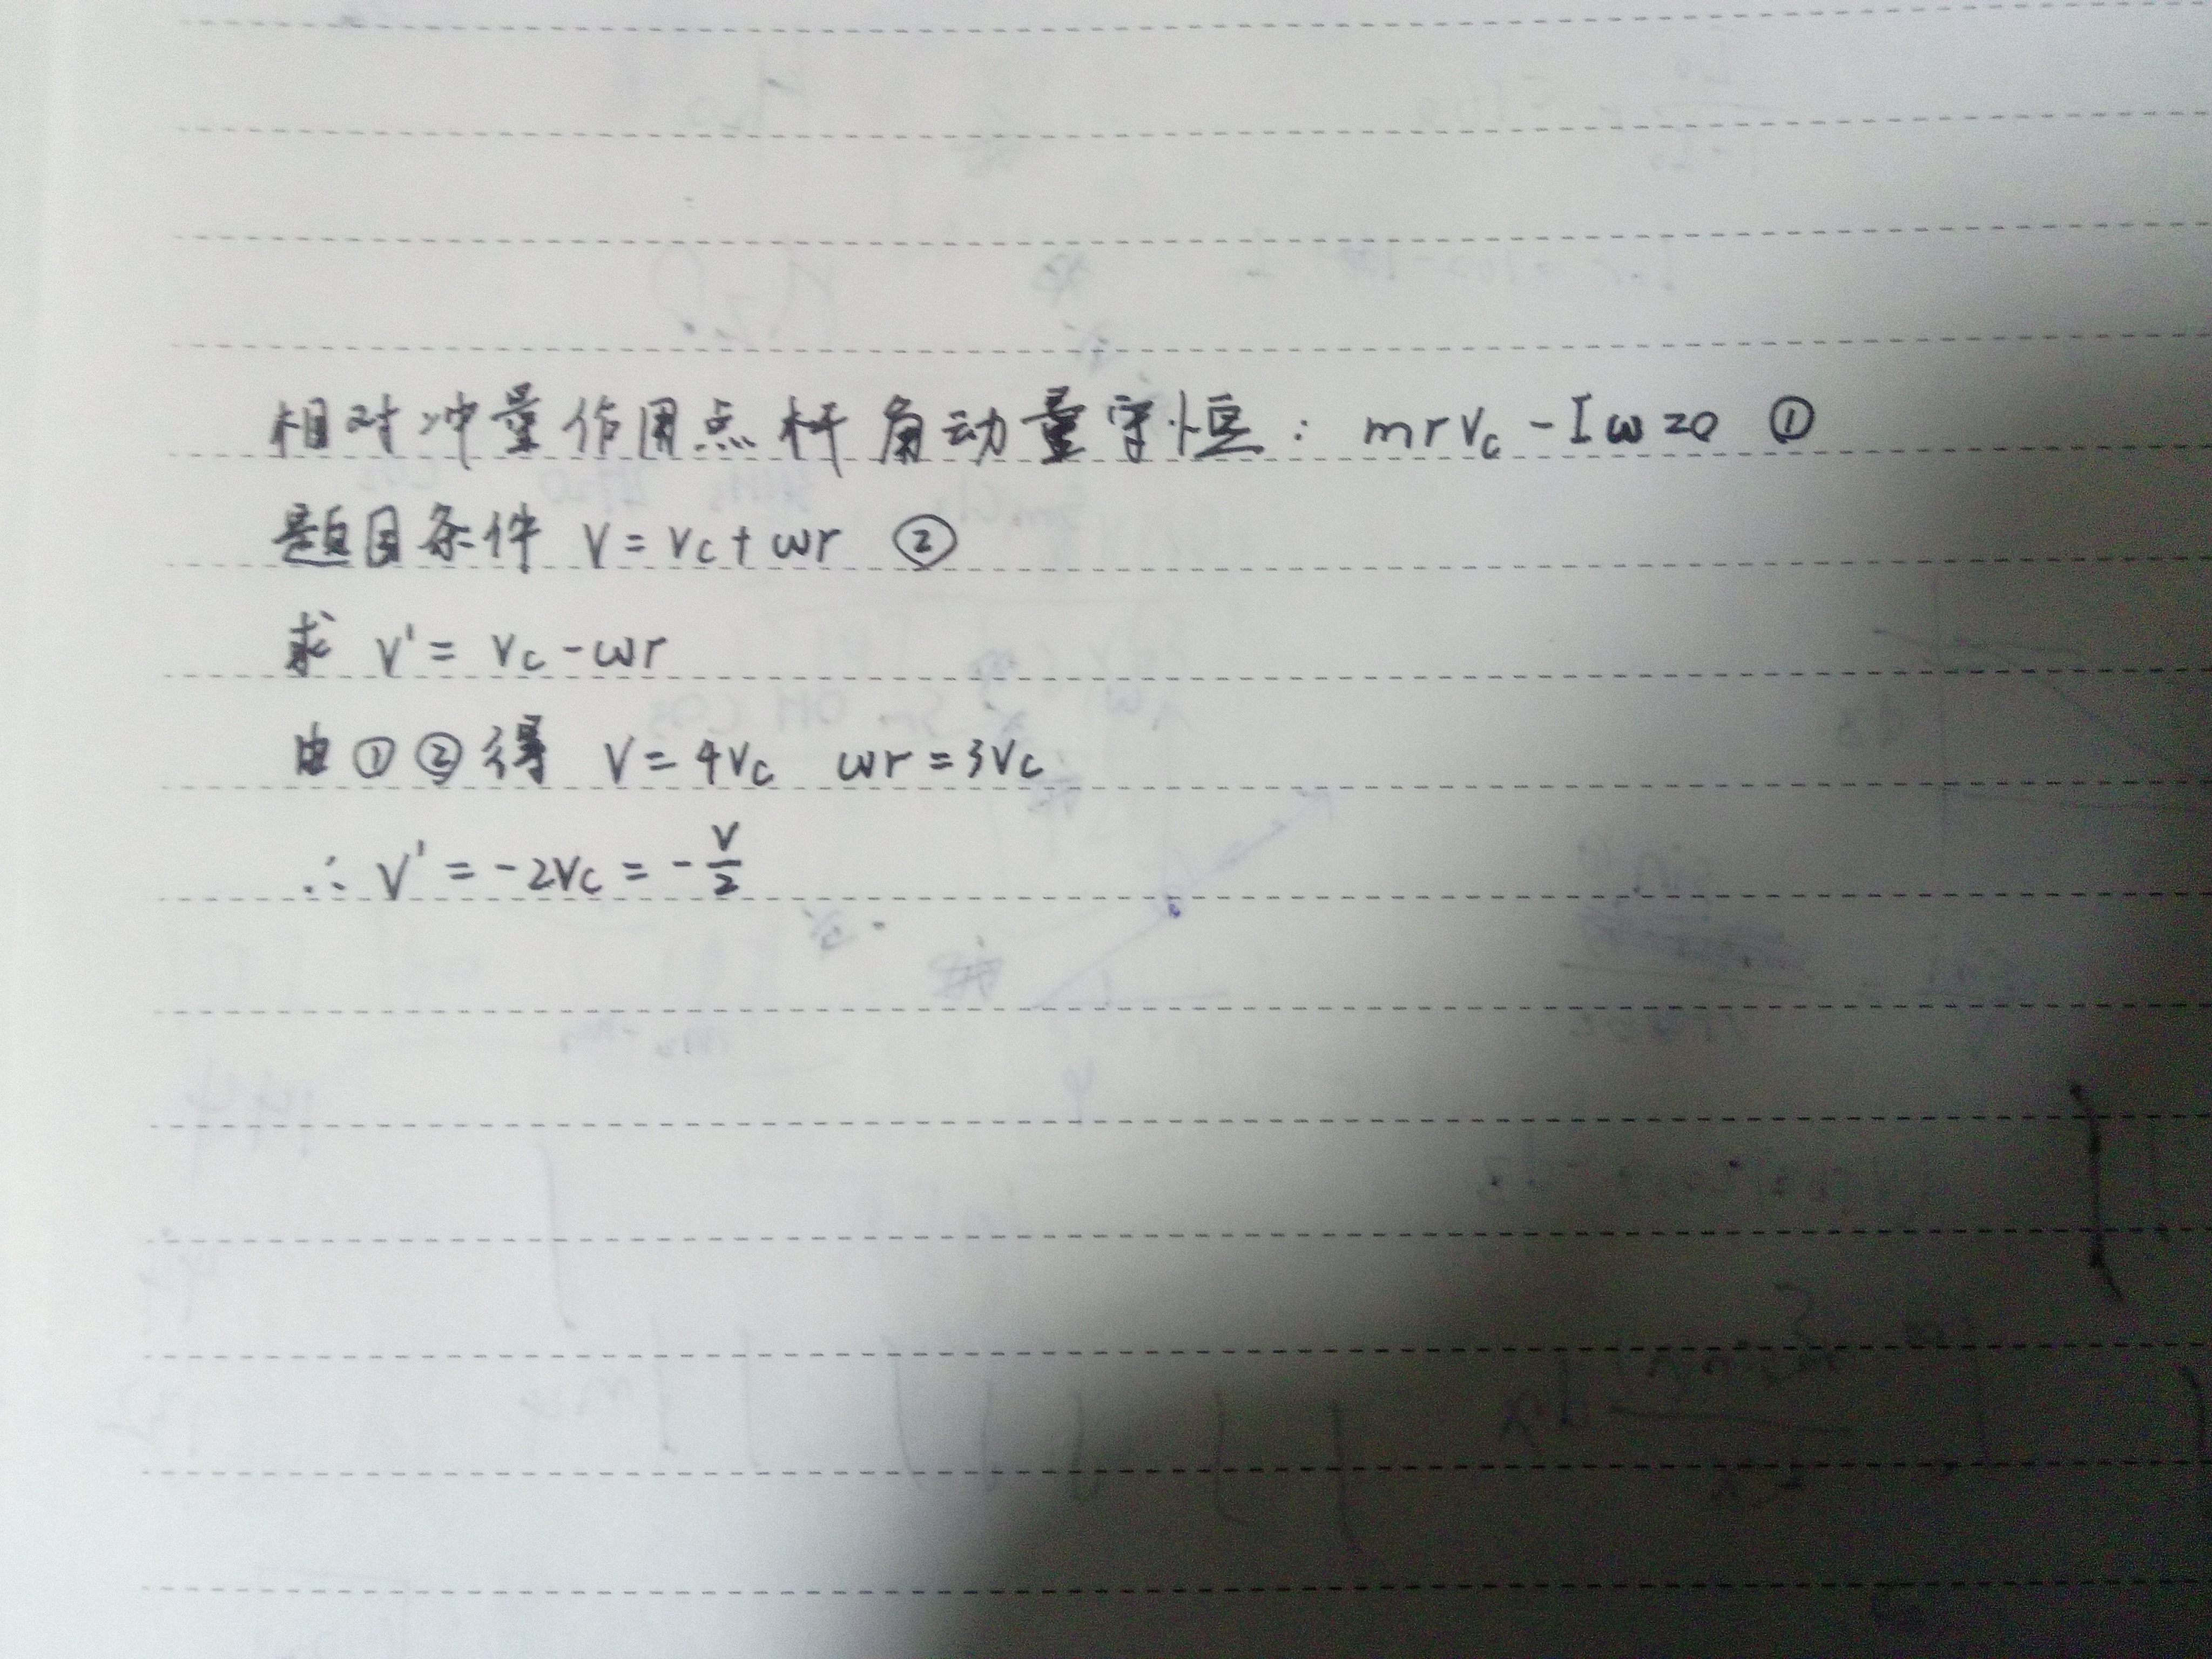 相对冲量作用点杆角动量守恒: mrVc - Iω=0 ①
题目条件 V = Vc + ωr ②
求 V' = Vc - ωr
由①②得 V = 4Vc ωr = 3Vc
∴ V' = -2Vc = -V/2